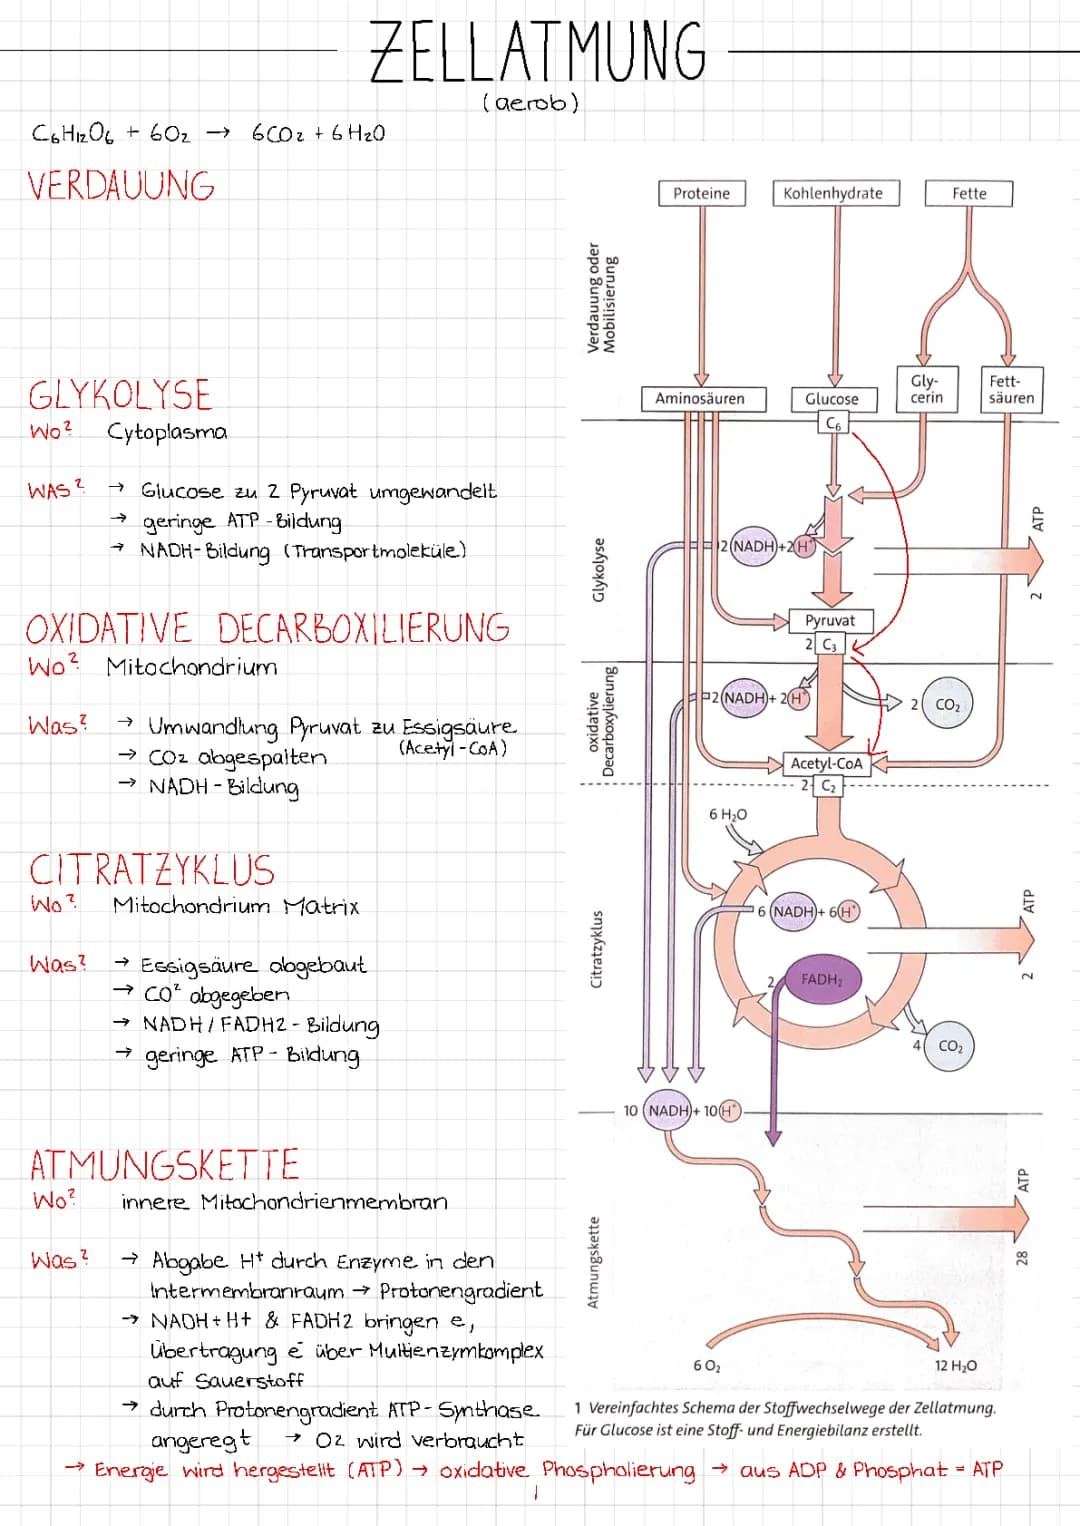 ZELLATMUNG
(aerob)
C₆H₁₂O₆ + 6O₂ → 6CO₂ + 6H₂O
VERDAUUNG
GLYKOLYSE
Wo? Cytoplasma
WAS? → Glucose zu 2 Pyruvat umgewandelt
→ geringe ATP-Bildung
→ NADH-Bildung (Transportmoleküle)
OXIDATIVE DECARBOXILIERUNG
Wo? Mitochondrium
Was? → Umwandlung Pyruvat zu Essigsäure
(Acetyl-CoA)
→ CO₂ abgespalten
→ NADH-Bildung
CITRATZYKLUS
Wo? Mitochondrium Matrix
Was? → Essigsäure abgebaut
→ CO² abgegeben
→ NADH/FADH2-Bildung
→ geringe ATP-Bildung
ATMUNGSKETTE
Wo? innere Mitochondrienmembran
Was? → Abgabe H+ durch Enzyme in den
Intermembranraum → Protonengradient
→ NADH+H+ & FADH2 bringen e,
Übertragung e⁻ über Multienzymkomplex
auf Sauerstoff
→ durch Protonengradient ATP-Synthase
angeregt → O2 wird verbraucht
→ Energie wird hergestellt (ATP) → oxidative Phospholierung → aus ADP & Phosphat = ATP
Proteine Kohlenhydrate Fette
Verdauung oder
Mobilisierung
Aminosäuren Glucose Gly-
cerin Fett-
säuren
C₆
Glykolyse
2 NADH + 2 H⁺
2 ATP
Pyruvat
2 C₃
oxidative
Decarboxylierung
2 NADH + 2 H⁺
2 CO₂
Acetyl-CoA
2 C₂
6 H₂O
Citratzyklus
6 NADH + 6 H⁺
2 ATP
2 FADH₂
4 CO₂
10 NADH + 10 H⁺
Atmungskette
28 ATP
6 O₂ 12 H₂O
1 Vereinfachtes Schema der Stoffwechselwege der Zellatmung.
Für Glucose ist eine Stoff- und Energiebilanz erstellt.